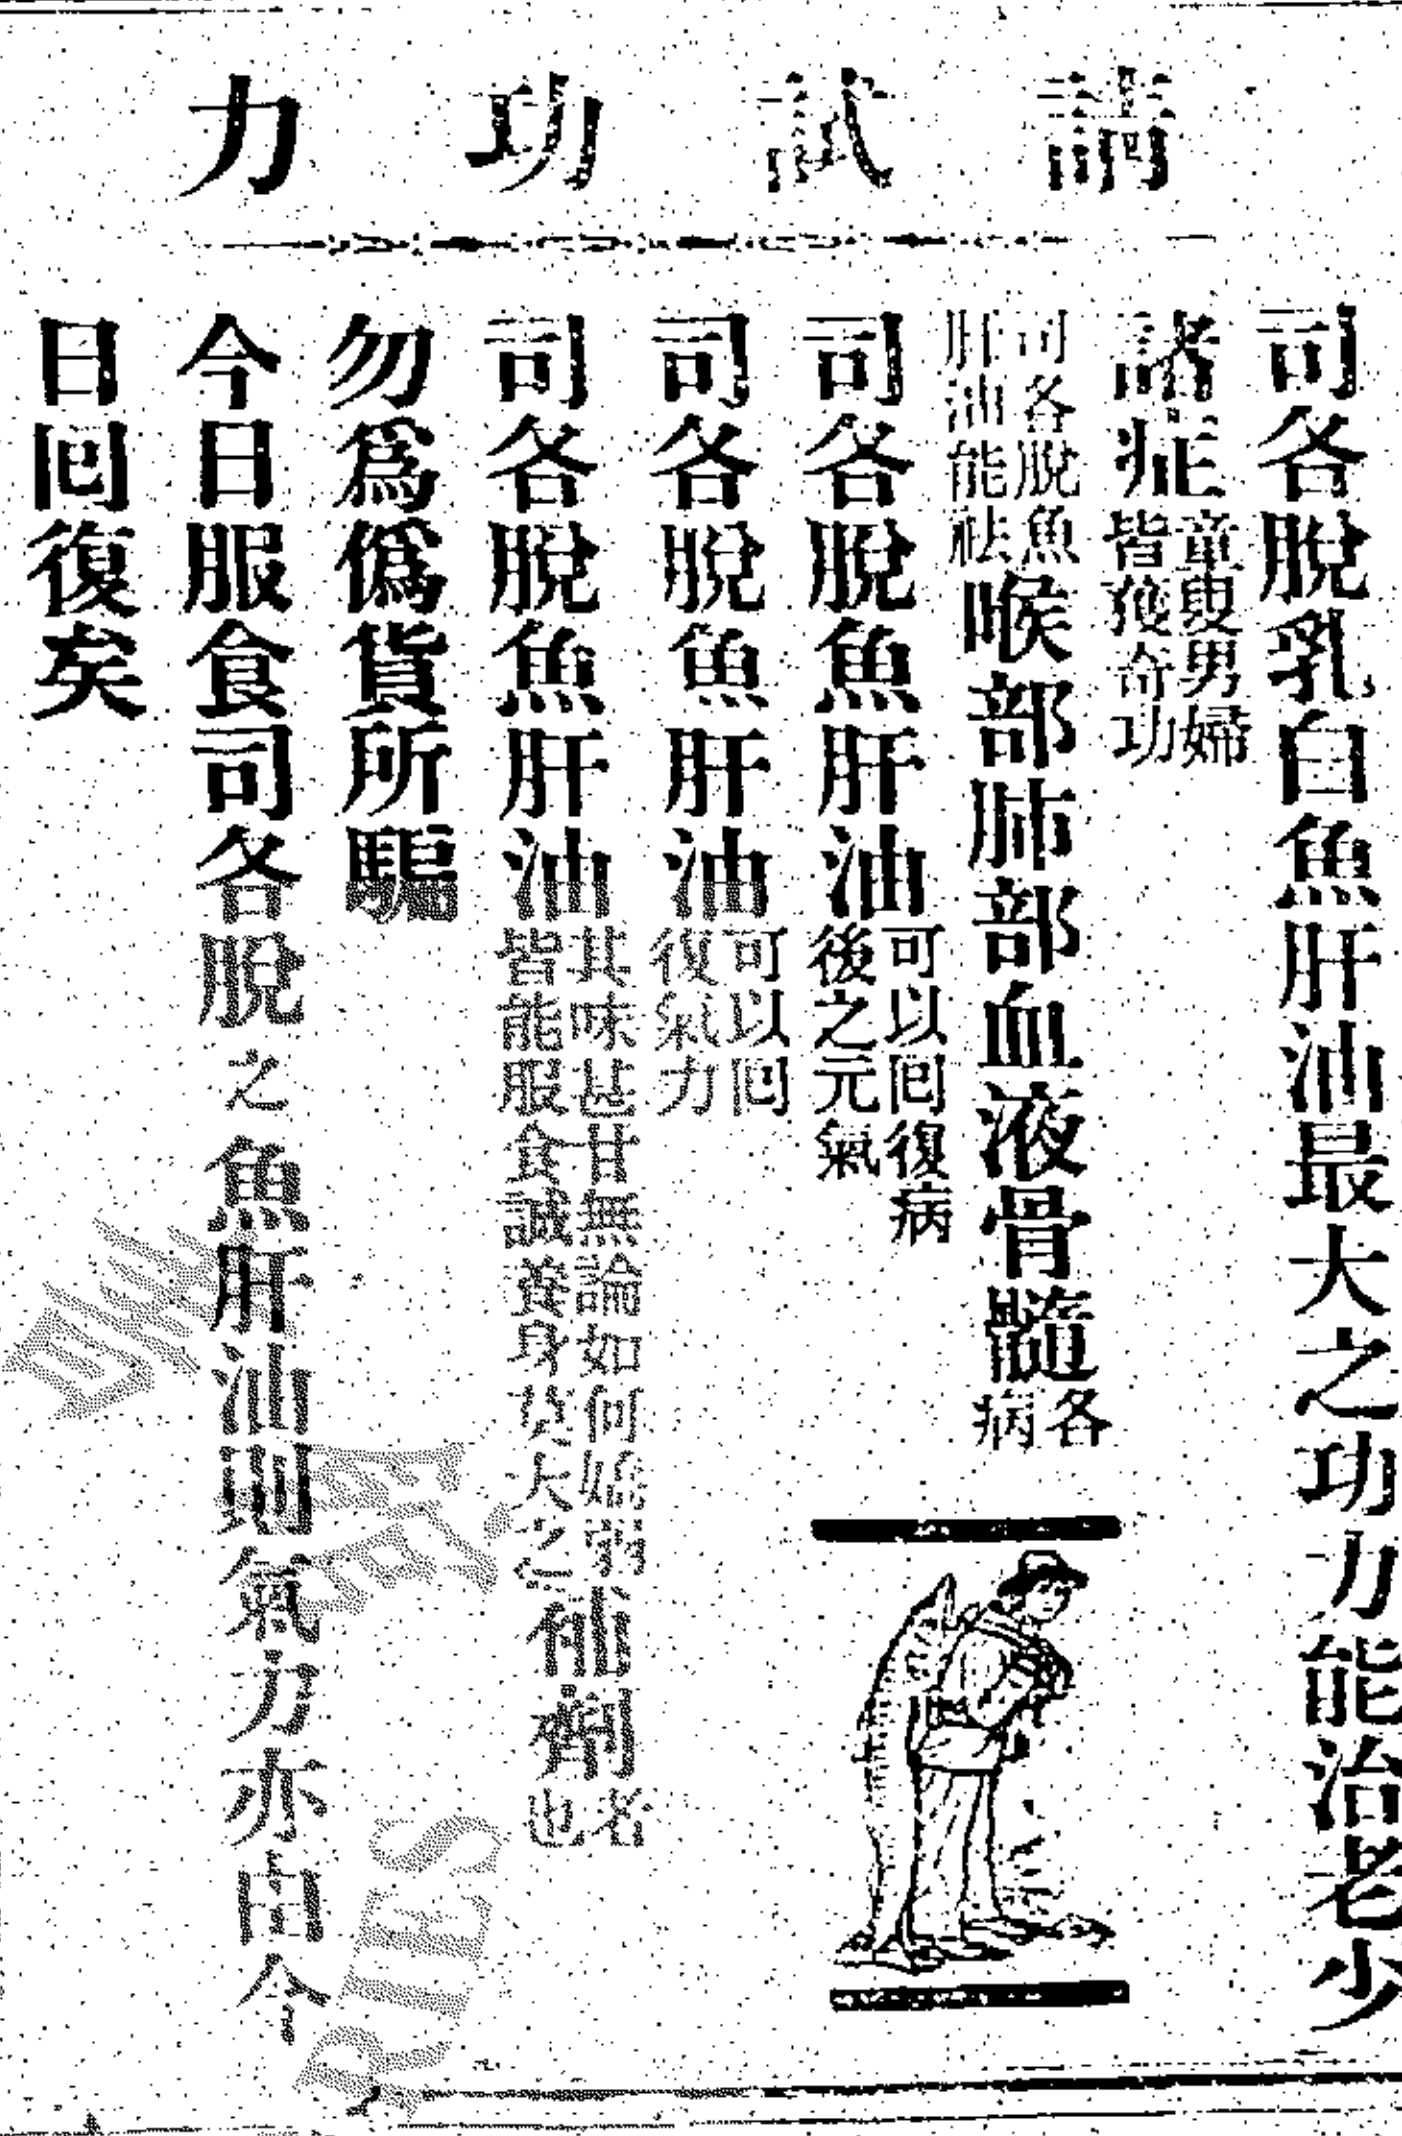 請試功力
司各脫乳白魚肝油最大之功力能治老少
諸症童叟男婦皆獲奇功
司各脫魚肝油能祛喉部肺部血液骨髓各病
司各脫魚肝油可以回復病後之元氣
司各脫魚肝油可以回復氣力
司各脫魚肝油其味甚甘無論如何皆能服食誠養身補劑者也
勿爲僞貨所騙
今日服食司各脫之魚肝油則氣力亦由今
日回復矣